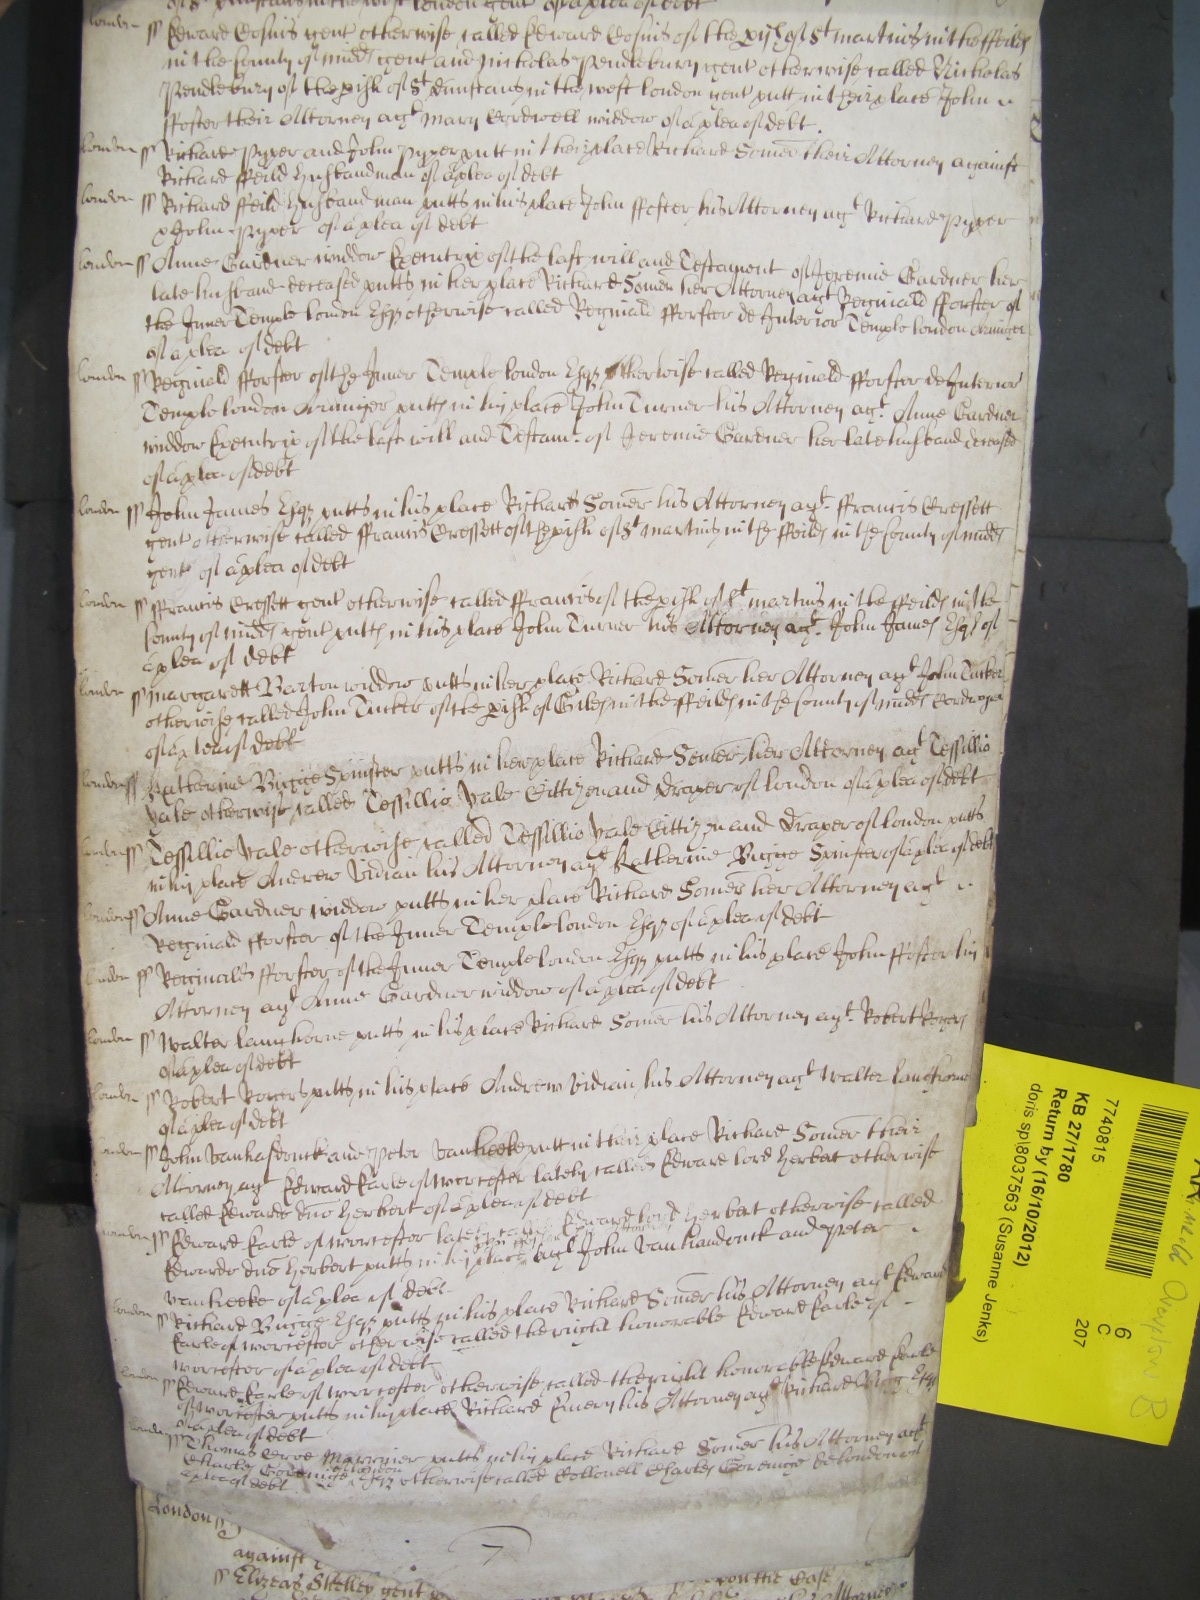 of St Dunstans in the west london gent of a plea of debt
london ss Edward Cosins gent otherwise called Edward Cosins of the pish of St martins in the ffeilds
in the County of midds gent and Nicholas Pendlebury gent otherwise called Nicholas
Pendlebury of the pish of St Dunstans in the west london gent putt in their place John
ffoster their Attorney agt Mary Cordwell widdow of a plea of debt.
london ss Richard Pyper and John Pyper putt in their place Richard Somer their Attorney against
Richard ffeild husbandman of a plea of debt
london ss Richard ffeild husbandman putts in his place John ffoster his Attorney agt Richard Pyper
& John Pyper of a plea of debt
london ss Anne Gardner widdow Executrix of the last will and Testament of Jeremie Gardner her
late husband deceased putts in her place Richard Somer her Attorney agt Reginald fforster of
the Inner Temple london Esqz otherwise called Reginald fforster de Interior Temple london Armiger
of a plea of debt
london ss Reginald fforster of the Inner Temple london Esqz otherwise called Reginald fforster de Interior
Temple london Armiger putts in his place John Turner his Attorney agt. Anne Gardner
widdow Executrix of the last will and Testamt. of Jeremie Gardner her late husband deceased
of a plea of debt
london ss John James Esqz putts in his place Richard Somer his Attorney agt. ffrancis Cressett
gent otherwise called ffrancis Cressett of the pish of St martins in the ffeilds in the County of midds
gent of a plea of debt
london ss ffrancis Cressett gent otherwise called ffrancis of the pish of St martins in the ffeilds in the
County of midds gent putts in his place John Turner his Attorney agt. John James Esqz of
a plea of debt
london ss margarett Barton widdow putts in her place Richard Somer her Attorney agt John Tucker
otherwise called John Tucker of the pish of Giles in the ffeilds in the County of midds
of a plea of debt
london ss Katherine Bugge Spinster putts in her place Richard Somer her Attorney agt Tessillio
Yale otherwise called Tessillio Yale Cittizen and Draper of london of a plea of debt
london ss Tessillio Yale otherwise called Tessillio Yale Cittizen and Draper of london putts
in his place Andrew Vidian his Attorney agt Katherine Bugge Spinster of a plea of debt
london ss Anne Gardner widdow putts in her place Richard Somer her Attorney agt
Reginald fforster of the Inner Temple london Esqz of a plea of debt
london ss Reginald fforster of the Inner Temple london Esqz putts in his place John ffoster his
Attorney agt Anne Gardner widdow of a plea of debt
london ss Walter langhorne putts in his place Richard Somer his Attorney agt. Robert Rogers
of a plea of debt
london ss Robert Rogers putts in his place Andrew Vidian his Attorney agt Walter langhorne
of a plea of debt
london ss John Vanhasdonck and Peter Vanheeke putt in their place Richard Somer their
Attorney agt Edward Earle of worcester lately called Edward lord Herbert otherwise
called Edwardo dno Herbert of a plea of debt
london ss Edward Earle of worcester lately called Edward lord Herbert otherwise called
Edwardo dno Herbert putts in his place agt John Vanhandonck and Peter
Vanheeke of a plea of debt
london ss Richard Bugge Esqz putts in his place Richard Somer his Attorney agt Edward
Earle of worcester otherwise called the right honorable Edward Earle of
worcester of a plea of debt
london ss Edward Earle of worcester otherwise called the right honorable Edward Earle
of worcester putts in his place Richard Emery his Attorney agt Richard Bugg Esqz
of a plea of debt
london ss Thomas Marriner putts in his place Richard Somer his Attorney agt
Charles Goreinge of london Esqz otherwise called Collonell Charles Goreinge de london
a plea of debt
London ss
7
against
ss Elizeas Skelley gent
upon the Case
Attorney
7740815
KB 27/1780
Return by (16/10/2012)
doris spl8037563 (Susanne Jenks)
6
C
207
B